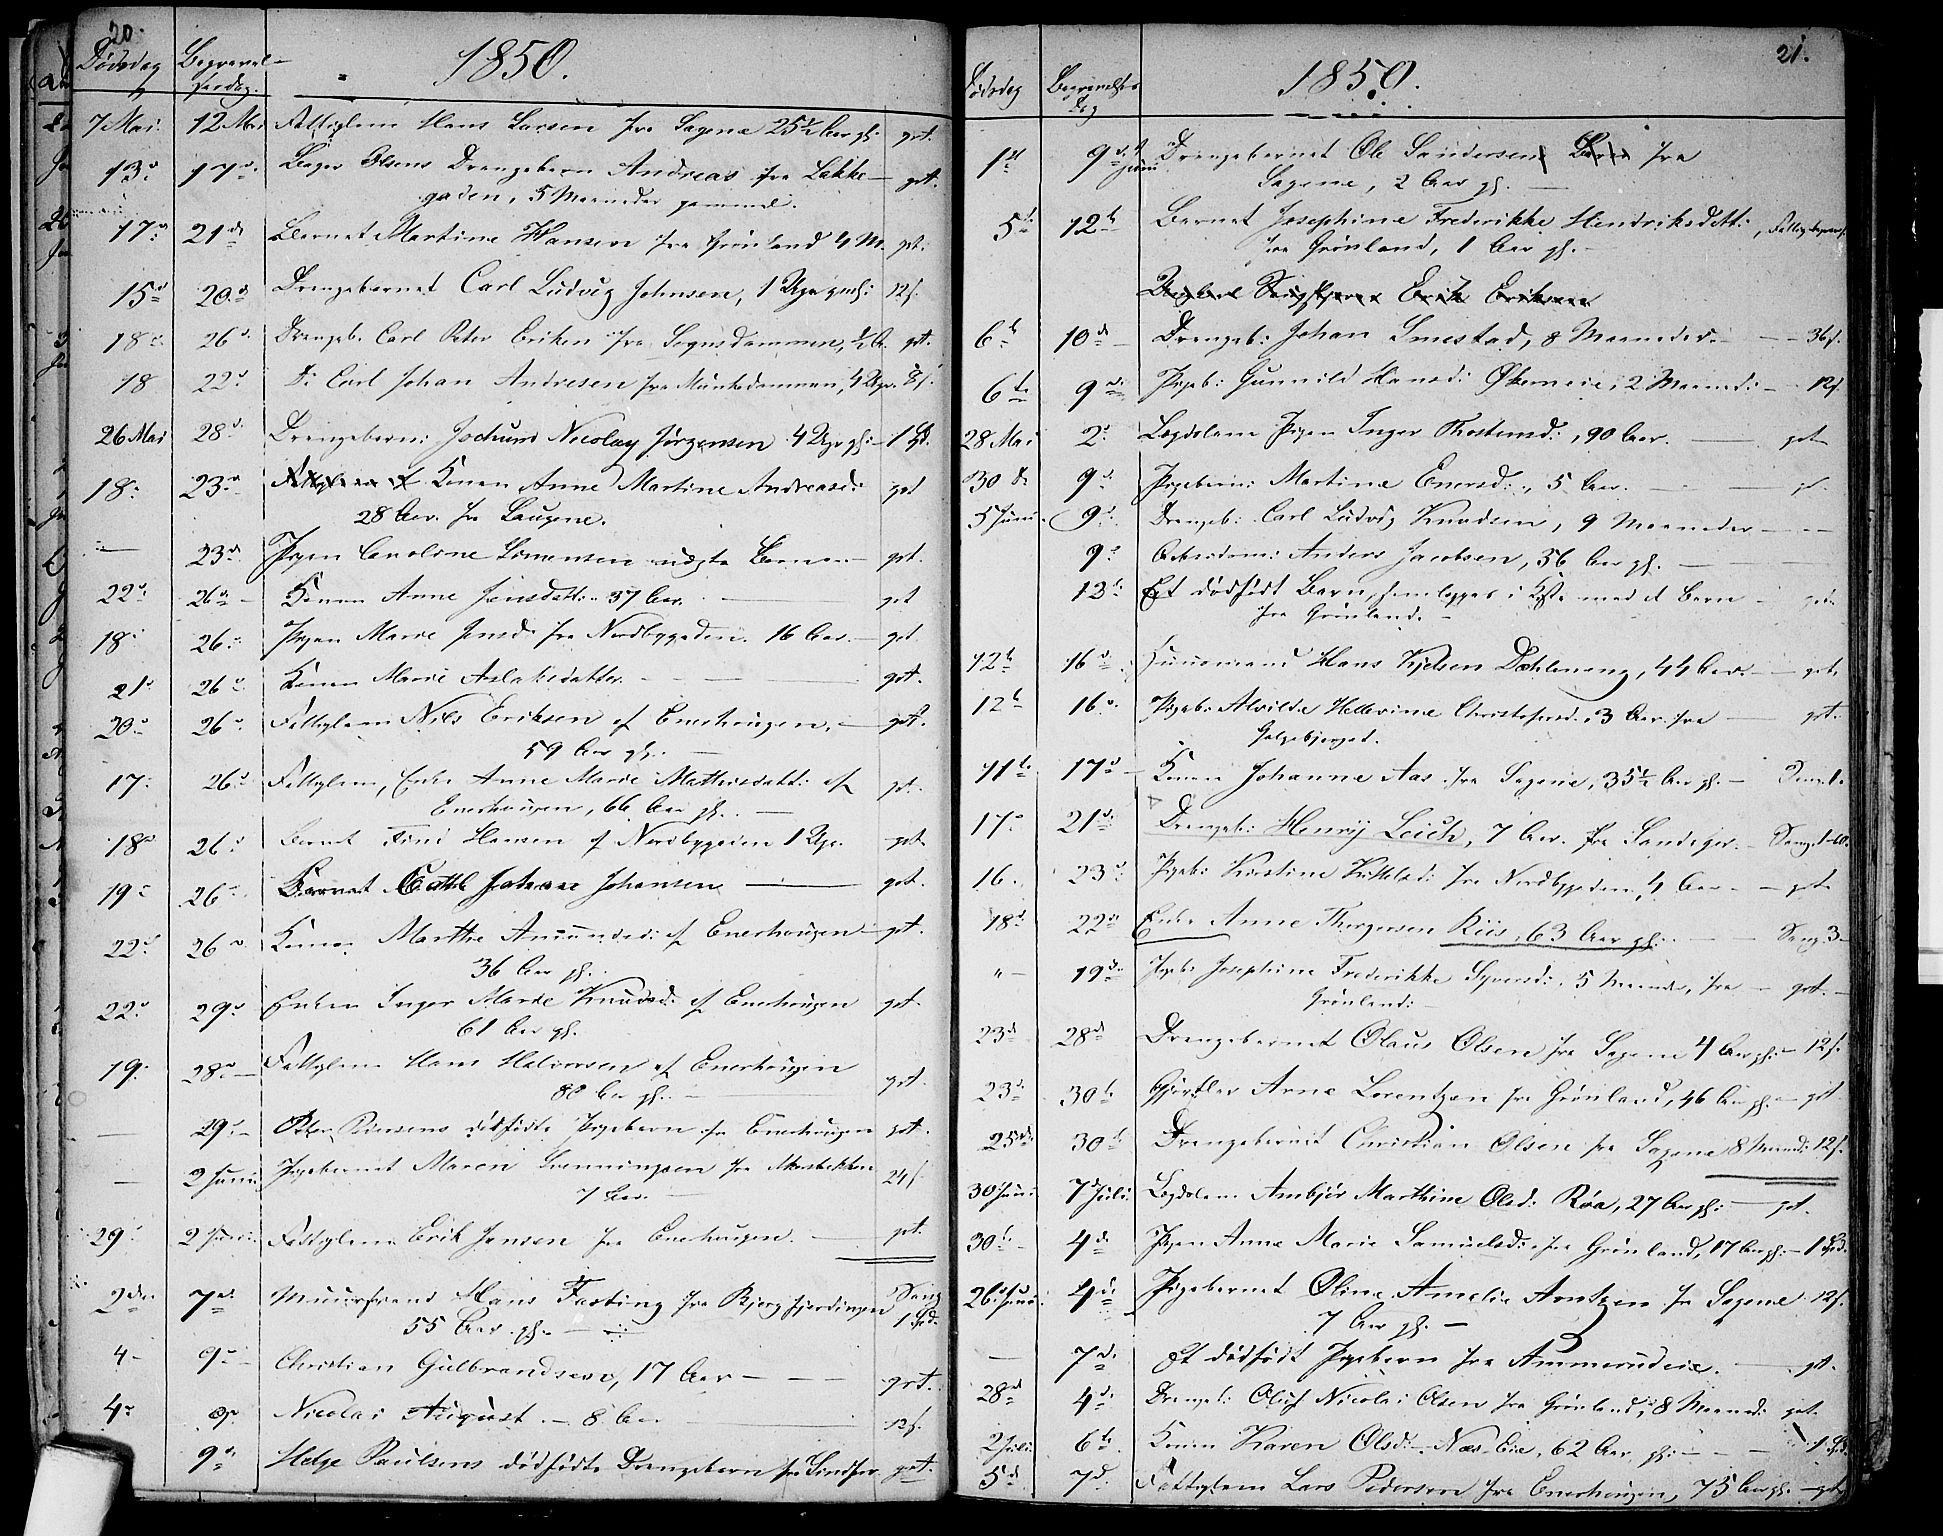 20.
Dødsdag Begravel-
sesdag. 1850.
7 Mai. 12 Mai Fattiglem Hans Larsen fra Sagene 25½ Aar gl: grt.
13d 17d Andreas fra Lakke- grt.
gaden, 5 Maaneder gammel.
17d 21de Barnet Martine Hansen fra Grønland 4 M. grt.
15d 20d Drengebarnet Carl Ludvig Johnsen, 1 Uge gml: 12s.
18d 26d Drengeb. Carl Peter Eriksen fra Sognsdammen, ½ A. grt.
18 22d Do Carl Johan Andresen fra Munkedammen, 4 Uger. 8s.
26 Mai 28d Drengebarn: Jochum Nicolay Jørgensen 4 Uger gl: 1 Spd.
18d 23d Konen Anne Martine Andreasd: grt
28 Aar. fra Saugene.
— 23d Pigen Caroline Simensen Barn — grt.
22d 26d Konen Anne Jensdatt: 37 Aar. — grt
18d 26d Pigen Marie Jensd: fra Nordbygaden. 16 Aar. — grt
21d 26d Konen Marie Aslaksdatter — grt.
20d 26d Fattiglem Nils Eriksen af Enerhougen. — grt.
59 Aar gl. —
17d 26d Fattiglem, Enke Anne Marie Mathisdatt: af grt.
Enerhougen, 66 Aar gl. —
18d 26d Barnet Hansen af Nordbygaden 1 Uge. grt
19d 26d Barnet Johan Johansen — grt.
22d 26d Konen Marthe Amundsd: af Enerhougen — grt.
36 Aar gl.
22d 29d Enken Inger Marie Knudsd: af Enerhougen grt.
61 Aar gl.
19d 28d Fattiglem Hans Halvorsen af Enerhougen grt.
80 Aar gl. —
— 29d dødfødte Pigebarn fra Enerhougen grt.
— 2 Juni Pigebarnet Maren Svenningsen fra 24s
7 Aar. —
29d 2 Juni Fattiglem Erik Jensen fra Enerhougen. — grt.
2den 7d Muursvend Hans Fasting fra Bjergfjerdingen Sang
55 Aar gl. — 1 Spd.
4 — 9d Christian Gulbrandsen, 17 Aar — grt.
4d 9d Nicolai August. — 8 Aar 12s.
9d Helge Paulsens dødfødte Drengebarn fra grt.
21.
Dødsdag Begravelses
Dag 1850.
1st 9d Juni Drengebarnet Ole Sandersen fra
Sagene, 2 Aar gl. —
5te 12te Barnet Josephine Frederikke Hendriksdatt:,
fra Grønland, 1 Aar gl. —
Erik Eriksen
6te 10de Drengeb: Johan Smestad, 8 Maaneder. — 36s.
6te 9de Pigeb: Gunnild Hansd: 2 Maaned: — 12s.
28 Mai 2d Lægdslem Pigen Inger Thostensd:, 90 Aar. — grt
30 d 9d Pigebarn: Martine Enersd:, 5 Aar. —
5 Juni 9d Drengeb: Carl Ludvig Knudsen, 9 Maaneder —
9d Anders Jacobsen, 56 Aar gl. —
13de Et dødfødt Barn, i Kiste med et Barn — grt.
fra Grønland. —
12te 16d Huusmand Hans Kjelsen Dæhleneng, 44 Aar. — grt
12te 16d Pigeb: Alvilde Hellevine Christophersd: 3 Aar. fra — grt.
Galgebjerget.
11te 17d Konen Johanne Aas fra Sagene, 35½ Aar gl. — Sang. 1.
17d 21d Drengeb: Henrij Leich, 7 Aar. fra
16. 23d Pigeb: Kirstine fra Nordbygaden, 4 Aar — grt
18d 22d Enke Anne Thorgersen Riis, 63 Aar gl: — Sang. 3 —
" — 19d Pigeb: Josephine Frederikke Syversd: 5 Maaneder, fra — grt. —
Grønland:
23d 28d Drengebarnet Olaus Olsen fra Sagene 4 Aar gl: — 12s.
23d 30te Gjørtler Arne Lorentzen fra Grønland, 46 Aar gl. — grt
25de 30te Drengebarnet Christian Olsen fra Sagene 8 Maand: 12s.
30 Juni 7 Juli Lægdslem Ambjør Marthine Olsd: Røa, 27 Aar gl: — grt.
30te 4de Pigen Anne Marie Samuelsd: fra Grønland, 17 Aar gl: — 1 Spd.
26 Juni 4de Pigebarnet Oline Amalie Arntzen fra Sagene 12s.
7 Aar gl. —
— 7de Et dødfødt Pigebarn fra Ammerudeie. — grt.
28d 4de Drengeb: Oluf Nicolai Olsen fra Grønland, 8 Maaned: grt.
2 Juli 6te Konen Karen Olsd: Næs-Eie, 62 Aar gl: — 1 Spd.
5d 7d. Fattiglem Lars Pedersen fra Enerhougen, 75 Aar gl. — grt